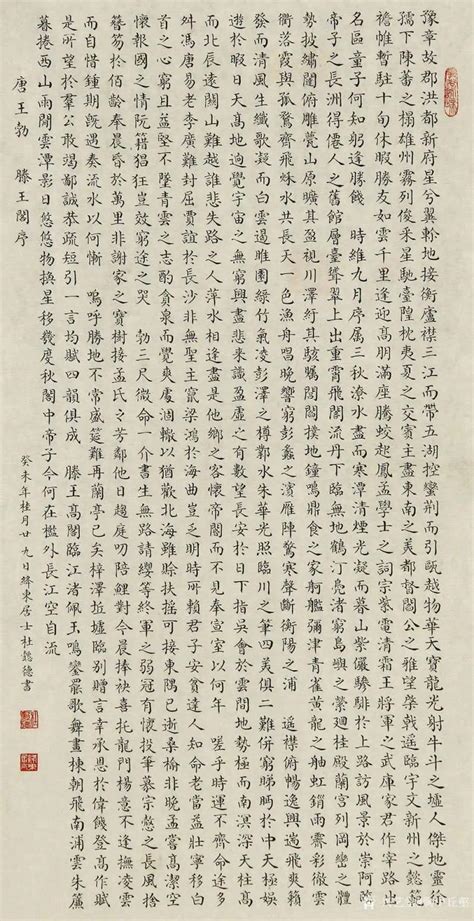 豫章故郡洪都新府星分翼軫地接衡廬襟三江而帶五湖控蠻荊而引甌越物華天寶龍光射牛斗之墟人傑地靈徐
孺下陳蕃之榻雄州霧列俊采星馳臺隍枕夷夏之交賓主盡東南之美都督閻公之雅望棨戟遙臨宇文新州之懿範
襜帷暫駐十旬休暇勝友如雲千里逢迎高朋滿座騰蛟起鳳孟學士之詞宗紫電清霜王將軍之武庫家君作宰路出
名區童子何知躬逢勝餞 時維九月序屬三秋潦水盡而寒潭清煙光凝而暮山紫儼驂騑於上路訪風景於崇阿臨
帝子之長洲得僊人之舊館層臺聳翠上出重霄飛閣流丹下臨無地鶴汀鳧渚窮島嶼之縈迴桂殿蘭宮列岡巒之體
勢披繡闥俯雕甍山原曠其盈視川澤紆其駭矚閭閻撲地鐘鳴鼎食之家舸艦彌津青雀黃龍之舳虹銷雨霽彩徹雲
衢落霞與孤鶩齊飛秋水共長天一色漁舟唱晚響窮彭蠡之濱雁陣驚寒聲斷衡陽之浦 遙襟俯暢逸興遄飛爽籟
發而清風生纖歌凝而白雲遏睢園綠竹氣凌彭澤之樽鄴水朱華光照臨川之筆四美俱二難併窮睇眄於中天極娛
遊於暇日天高地迥覺宇宙之無窮興盡悲來識盈虛之有數望長安於日下指吳會於雲間地勢極而南溟深天柱高
而北辰遠關山難越誰悲失路之人萍水相逢盡是他鄉之客懷帝閽而不見奉宣室以何年 嗟乎時運不齊命途多
舛馮唐易老李廣難封屈賈誼於長沙非無聖主竄梁鴻於海曲豈乏明時所賴君子安貧達人知命老當益壯寧移白
首之心窮且益堅不墜青雲之志酌貪泉而覺爽處涸轍以猶歡北海雖賒扶搖可接東隅已逝桑榆非晚孟嘗高潔空
懷報國之情阮籍猖狂豈效窮途之哭 勃三尺微命一介書生無路請纓等終軍之弱冠有懷投筆慕宗愨之長風捨
簪笏於百齡奉晨昏於萬里非謝家之寶樹接孟氏之芳鄰他日趨庭叨陪鯉對今晨捧袂喜托龍門楊意不逢撫凌雲
而自惜鍾期既遇奏流水以何慚 嗚呼勝地不常盛筵難再蘭亭已矣梓澤丘墟臨別贈言幸承恩於偉餞登高作賦
是所望於羣公敢竭鄙誠恭疏短引一言均賦四韻俱成 滕王高閣臨江渚佩玉鳴鑾罷歌舞畫棟朝飛南浦雲朱簾
暮捲西山雨閒雲潭影日悠悠物換星移幾度秋閣中帝子今何在檻外長江空自流
唐王勃 滕王閣序
癸未年桂月廿九日絳東居士杜懿德書